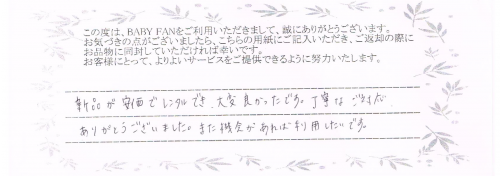 この度は、BABY FANをご利用いただきまして、誠にありがとうございます。
お気づきの点がございましたら、こちらの用紙にご記入いただき、ご返却の際に
お品物に同封していただければ幸いです。
お客様にとって、よりよいサービスをご提供できるように努力いたします。
新品が安価でレンタルでき、大変良かったです。丁寧なご対応
ありがとうございました。また機会があれば利用したいです。